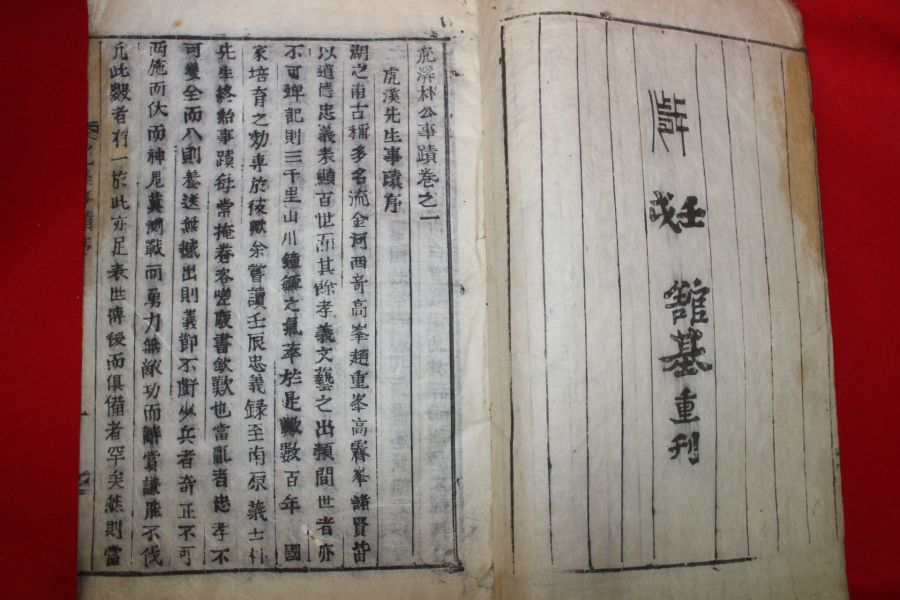 壬戌
舘基重刊
虎溪朴公事蹟卷之一
虎溪先生事蹟序
湖之南古稱多名流金河西奇高峯趙重峯高霽峯諸賢皆
以道德忠義表顯百世而其餘孝義文藝之出類間世者亦
不可殫記則三千里山川鐘毓之氣萃於是歟數百年 國
家培育之効專於彼歟余嘗讀壬辰忠義録至南原義士朴
先生終始事蹟每常掩卷咨嗟廢書欽歎也當亂者忠孝不
可雙全而入則養送無憾出則義節不虧少兵者奇正不可
兩施而伏而神鬼莫測戰而勇力無敵功而辭賞謙能不伐
凡此數者有一於此亦足表世傳後而俱備者罕矣然則當